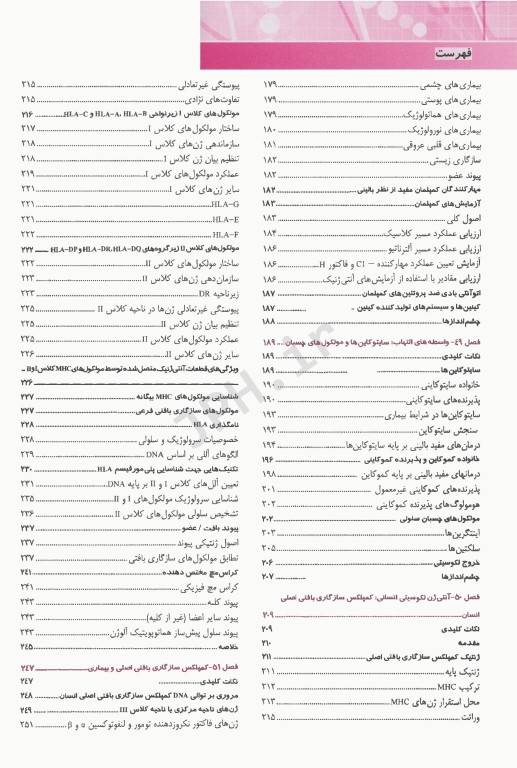 فهرست
بیماری‌های چشمی ... ۱۷۹
بیماری‌های پوستی ... ۱۷۹
بیماری‌های هماتولوژیک ... ۱۷۹
بیماری‌های نورولوژیک ... ۱۸۰
بیماری‌های قلبی عروقی ... ۱۸۱
سازگاری زیستی ... ۱۸۲
پیوند عضو ... ۱۸۲
مهارکنندگان کمپلمان مفید از نظر بالینی ... ۱۸۲
آزمایش‌های کمپلمان ... ۱۸۳
اصول کلی ... ۱۸۳
ارزیابی عملکرد مسیر کلاسیک ... ۱۸۴
ارزیابی عملکرد مسیر آلترناتیو ... ۱۸۶
آزمایش تعیین عملکرد مهارکننده – C1 و فاکتور H ... ۱۸۶
ارزیابی مقادیر با استفاده از آزمایش‌های آنتی‌ژنیک ... ۱۸۶
اتوآنتی بادی ضد پروتئین‌های کمپلمان ... ۱۸۷
کینین‌ها و سیستم‌های تولید کننده کینین ... ۱۸۷
چشم‌اندازها ... ۱۸۸
فصل ۴۹- واسطه های التهاب: سایتوکاین‌ها و مولکول‌های چسبان ... ۱۸۹
نکات کلیدی ... ۱۸۹
سایتوکاین‌ها ... ۱۸۹
خانواده سایتوکاینی ... ۱۹۰
پذیرنده‌های سایتوکاینی ... ۱۹۰
سایتوکاین‌ها در شرایط بیماری ... ۱۹۳
سنجش سایتوکاین ... ۱۹۳
درمان‌های مفید بالینی بر پایه سایتوکاین‌ها ... ۱۹۴
خانواده کموکاین و پذیرنده کموکاینی ... ۱۹۶
درمانهای مفید بالینی بر پایه کموکاین ... ۱۹۸
پذیرنده‌های کموکاینی غیرمعمول ... ۲۰۱
هومولوگ‌های پذیرنده کموکاینی ... ۲۰۲
مولکول‌های چسبان سلولی ... ۲۰۲
اینتگرین‌ها ... ۲۰۳
سلکتین‌ها ... ۲۰۵
خروج لکوسیتی ... ۲۰۶
چشم‌اندازها ... ۲۰۷
فصل ۵۰- آنتی‌ژن لکوسیتی انسانی: کمپلکس سازگاری بافتی اصلی
انسان ... ۲۰۹
نکات کلیدی ۲۰۹
مقدمه ۲۱۰
ژنتیک کمپلکس سازگاری بافتی اصلی ... ۲۱۱
ژنتیک پایه ... ۲۱۱
ترکیب MHC ... ۲۱۲
محل استقرار ژن‌های MHC ... ۲۱۳
وراثت ... ۲۱۵
پیوستگی غیرتعادلی ... ۲۱۵
تفاوت‌های نژادی ... ۲۱۵
مولکول‌های کلاس I زیرنواحی HLA-A، HLA-B و HLA-C ... ۲۱۶
ساختار مولکول‌های کلاس I ... ۲۱۷
سازماندهی ژن‌های کلاس I ... ۲۱۸
تنظیم بیان ژن کلاس I ... ۲۱۸
عملکرد مولکول‌های کلاس I ... ۲۱۹
سایر ژن‌های کلاس I ... ۲۲۱
HLA-G ... ۲۲۱
HLA-E ... ۲۲۱
HLA-F ... ۲۲۲
مولکول‌های کلاس II زیرگروه‌های HLA-DR، HLA-DQ و HLA-DP ... ۲۲۲
ساختار مولکول‌های کلاس II ... ۲۲۲
سازمان‌دهی ژن‌های کلاس II ... ۲۲۳
زیرناحیه DR ... ۲۲۳
پیوستگی غیرتعادلی ژن‌ها در ناحیه کلاس II ... ۲۲۵
تنظیم بیان ژن کلاس II ... ۲۲۵
عملکرد مولکول‌های کلاس II ... ۲۲۵
سایر ژن‌های کلاس II ... ۲۲۶
ویژگی‌های قطعات آنتی‌ژنیک متصل شده توسط مولکول‌های MHC کلاس I و II
... ۲۲۶
شناسایی مولکول‌های MHC بیگانه ... ۲۲۷
مولکول‌های سازگاری بافتی فرعی ... ۲۲۷
نامگذاری HLA ... ۲۲۸
خصوصیات سرولوژیک و سلولی ... ۲۲۸
الگوهای آللی بر اساس DNA ... ۲۲۹
تکنیک‌هایی جهت شناسایی پلی‌مورفیسم HLA ... ۲۳۰
تعیین آلل‌های کلاس I و II بر پایه DNA ... ۲۳۱
شناسایی سرولوژیک مولکول‌های I و II ... ۲۳۵
تشخیص سلولی مولکول‌های کلاس II ... ۲۳۶
پیوند بافت / عضو ... ۲۳۷
اصول ژنتیکی پیوند ... ۲۳۷
تطابق مولکول‌های سازگاری بافتی ... ۲۳۷
کراس‌مچ مختص دهنده ... ۲۴۱
کراس مچ فیزیکی ... ۲۴۱
پیوند کلیه ... ۲۴۳
پیوند سایر اعضا (غیر از کلیه) ... ۲۴۳
پیوند سلول پیش‌ساز هماتوپویتیک آلوژن ... ۲۴۳
خلاصه ... ۲۴۵
فصل ۵۱- کمپلکس سازگاری بافتی اصلی و بیماری ... ۲۴۷
نکات کلیدی ... ۲۴۷
مروری بر توالی DNA کمپلکس سازگاری بافتی اصلی انسان ... ۲۴۸
ژن‌های ناحیه مرکزی یا ناحیه کلاس III ... ۲۴۹
ژن‌های فاکتور نکروزدهنده تومور و لنفوتوکسین α و β ... ۲۵۱